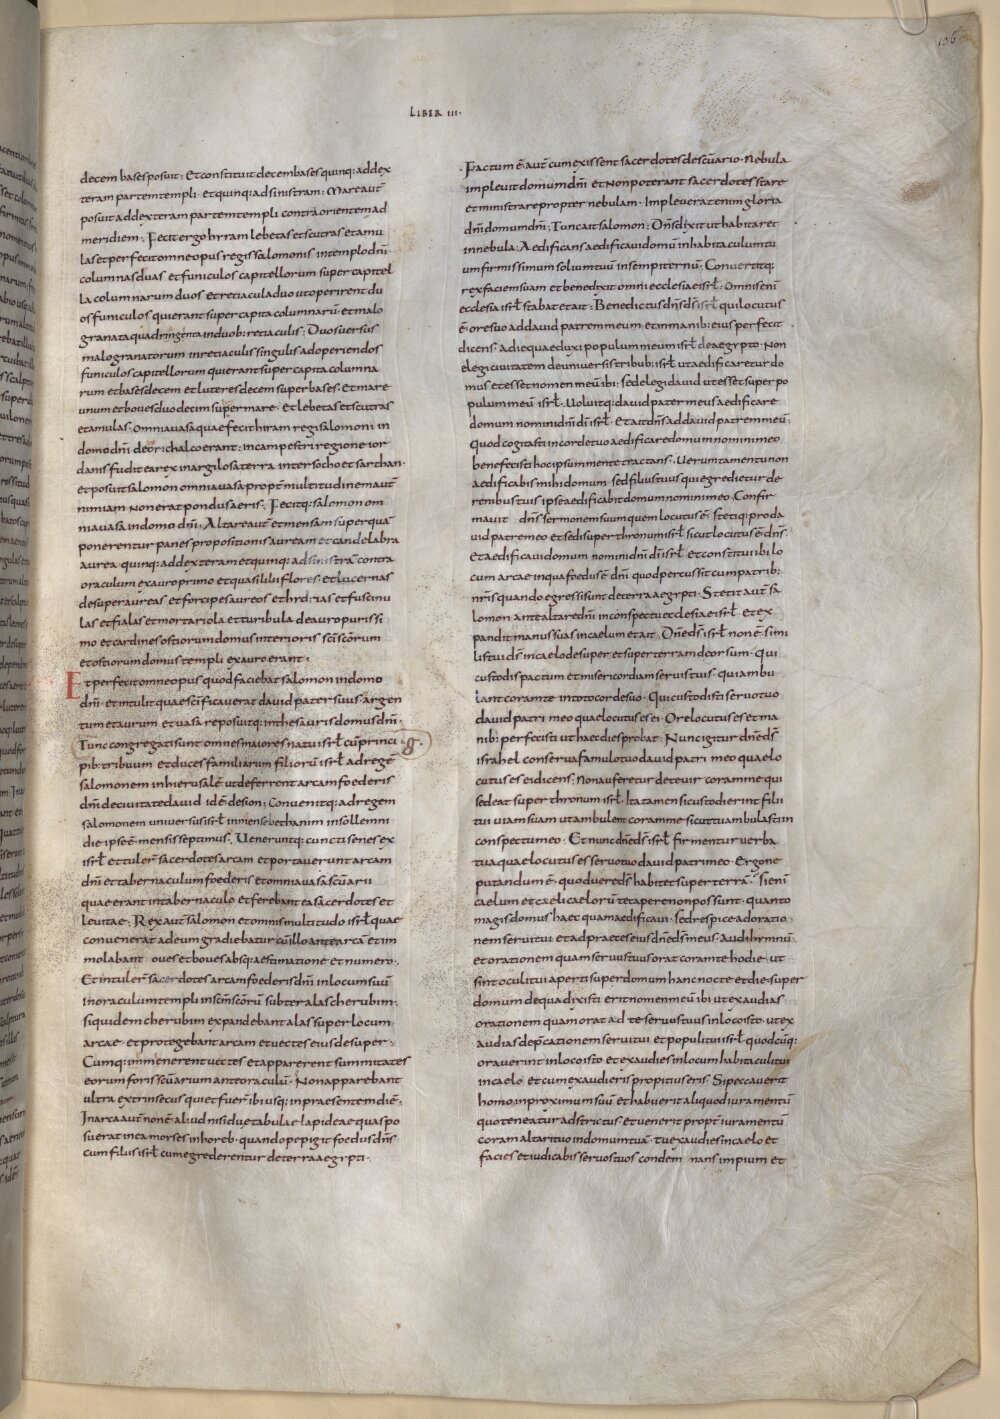 106
LIBER III·
decem bases posuit; Et constituit decem bases quinq: ad dex
teram partem templi· et quinq: ad sinistram; Mare aut̄
posuit ad dexteram partem templi contra orientem ad
meridiem; Fecit ergo hyram lebetas et scutras et amu
las et perfecit omne opus regis salomonis in templo dn̄i·
columnas duas et funiculos capitellorum super capitel
la columnarum duos et retiacula duo ut operirent du
os funiculos qui erant super capita columnarū· et malo
granata quadringenta in duob: retiaculis; Duos uersus
malogranatorum in retiaculis singulis ad operiendos
funiculos capitellorum qui erant super capita columna
rum et bases decem et luteres decem super bases· Et mare
unum et boues duodecim super mare· et lebetas et scutras
et amulas; Omnia uasa quae fecit hiram regi salomoni in
domo dn̄i de orichalco erant; in campestri regione ior
danis fudit ea rex in argilosa terra inter sochot et sarthan·
et posuit salomon omnia uasa propt̄ multitudinem aut̄
nimiam non erat pondus aeris; Fecitq: salomon om
nia uasa in domo dn̄i; Altare aut̄ et mensam super quā
ponerentur panes propositionis auream et candelabra
aurea· quinq: ad dexteram et quinq: ad sinistrā contra
oraculum ex auro primo et quasi lilii flores· et lucernas
desuper aureas et forcipes aureos et hydrias et fuscinu
las et fialas et mortariola et turibula de auro purissi
mo et cardines ostiorum domus interioris sc̄i sc̄orum
et ostiorum domus templi ex auro erant·
Et perfecit omne opus quod faciebat salomon in domo
dn̄i· et intulit quae sc̄ificauerat dauid pater suus· argen
tum et aurum et uasa reposuitq: in thesauris domus dn̄i·
Tunc congregati sunt omnes maiores natu isrł cū princi
pib: tribuum et duces familiarum filiorū isrł ad regē
salomonem in hierusalē ut deferrent arcam foederis
dn̄i de ciuitate dauid id ē de sion; Conuenitq: ad regem
salomonem uniuersus isrł in mense bethanim in sollemni
die ipse ē mensis septimus; Ueneruntq: cuncti senes ex
isrł et tuler̄ sacerdotes arcam et portauerunt arcam
dn̄i et tabernaculum foederis et omnia uasa sc̄uarii
quae erant in tabernaculo et ferebant ea sacerdotes et
leuitae; Rex aut̄ salomon et omnis multitudo isrł quae
conuenerat ad eum gradiebatur cū illo ante arcā et im
molabant oues et boues absq: aestimatione et numero·
Et intuler̄ sacerdotes arcam foederis dn̄i in locum suū
in oraculum templi in sc̄m sc̄orū subter alas cherubim·
siquidem cherubim expandebant alas super locum
arcae· et protegebant arcam et uectes eius desuper·
Cumq: imminerent uectes et apparerent summitates
eorum foris sc̄uarium ante oraculū· Non apparebant
ultra extrinsecus qui et fuer̄ ibi usq: in praesentem diē·
In arca aut̄ non ē aliud nisi duae tabulae lapideae quas po
suerat in ea moyses in horeb· quando pepigit foedus dn̄s
cum filiis isrł cum egrederentur de terra aegypti·
Factum ē aut̄ cum exissent sacerdotes de sc̄uario· Nebula
impleuit domum dn̄i et non poterant sacerdotes stare
et ministrare propter nebulam· Impleuerat enim gloria
dn̄i domum dn̄i; Tunc ait salomon; Dn̄s dixit ut habitaret
in nebula; Aedificans aedificaui domū in habitaculum tu
um firmissimum solium tuū in sempiternū; Conuertitq:
rex faciem suam et benedixit omni ecclesiae isrł· Omnis enī
ecclesia isrł stabat et ait; Benedictus dn̄s ds̄ isrł qui locutus
ē ore suo ad dauid patrem meum et in manib: eius perfecit
dicens· A die qua eduxi populum meum isrł de aegypto· Non
elegi ciuitatem de uniuersis tribub: isrł ut aedificaretur do
mus et esset nomen meū ibi; sed elegi dauid ut esset super po
pulum meū isrł· Uoluitq: dauid pater meus aedificare
domum nomini dn̄i dī isrł· Et ait dn̄s ad dauid patrem meū;
quod cogitasti in corde tuo aedificare domum nomini meo
benefecisti hoc ipsum mente tractans· Uerumtamen tu non
aedificabis mihi domum· sed filius tuus qui egredietur de
renibus tuis ipse aedificabit domum nomini meo· Confir
mauit dn̄s sermonem suum quem locutus ē· stetiq: pro da
uid patre meo et sedi super thronum isrł sicut locutus ē dn̄s·
et aedificaui domum nomini dn̄i dī isrł· et constitui ibi lo
cum arcae in qua foedus ē dn̄i quod percussit cum patrib:
nr̄is quando egressi sunt de terra aegypti· Stetit aut̄ sa
lomon ante altare dn̄i in conspectu ecclesiae isrł· et ex
pandit manus suas in caelum et ait; Dn̄e ds̄ isrł non ē simi
lis tui ds̄ in caelo desuper et super terram deorsum· Qui
custodis pactum et misericordiam seruis tuis· qui ambu
lant coram te in toto corde suo· Qui custodisti seruo tuo
dauid patri meo quae locutus es ei· Ore locutus es et ma
nib: perfecisti ut haec dies probat· Nunc igitur dn̄e ds̄
israhel conserua famulo tuo dauid patri meo quae lo
cutus es ei dicens; Non auferetur de te uir coram me qui
sedeat super thronum isrł· Ita tamen si custodierint filii
tui uiam suam ut ambulent coram me sicut tu ambulasti in
conspectu meo· Et nunc dn̄e ds̄ isrł firmentur uerba
tua quae locutus es seruo tuo dauid patri meo· Ergone
putandum ē· quod uere ds̄ habitet super terrā· Si enī
caelum et caeli caelorū te capere non possunt· quanto
magis domus haec quam aedificaui· sed respice ad oratio
nem serui tui et ad praeces eius dn̄e ds̄ meus· Audi hymnū
et orationem quam seruus tuus orat coram te hodie· ut
sint oculi tui aperti super domum hanc nocte et die· super
domum de qua dixisti erit nomen meū ibi ut exaudias
orationem quam orat ad te seruus tuus in loco isto· ut ex
audias dep̄cationem serui tui et populi tui isrł quodcūq:
orauerint in loco isto et exaudies in locum habitaculi tui
in caelo et cum exaudieris propitius eris· Si peccauerit
homo in proximum suū et habuerit aliquod iuramentū
quo teneatur adstrictus· et uenerit propt̄ iuramentū
coram altari tuo in domum tuā· tu exaudies in caelo et
facies et iudicabis seruos tuos condem nans impium et